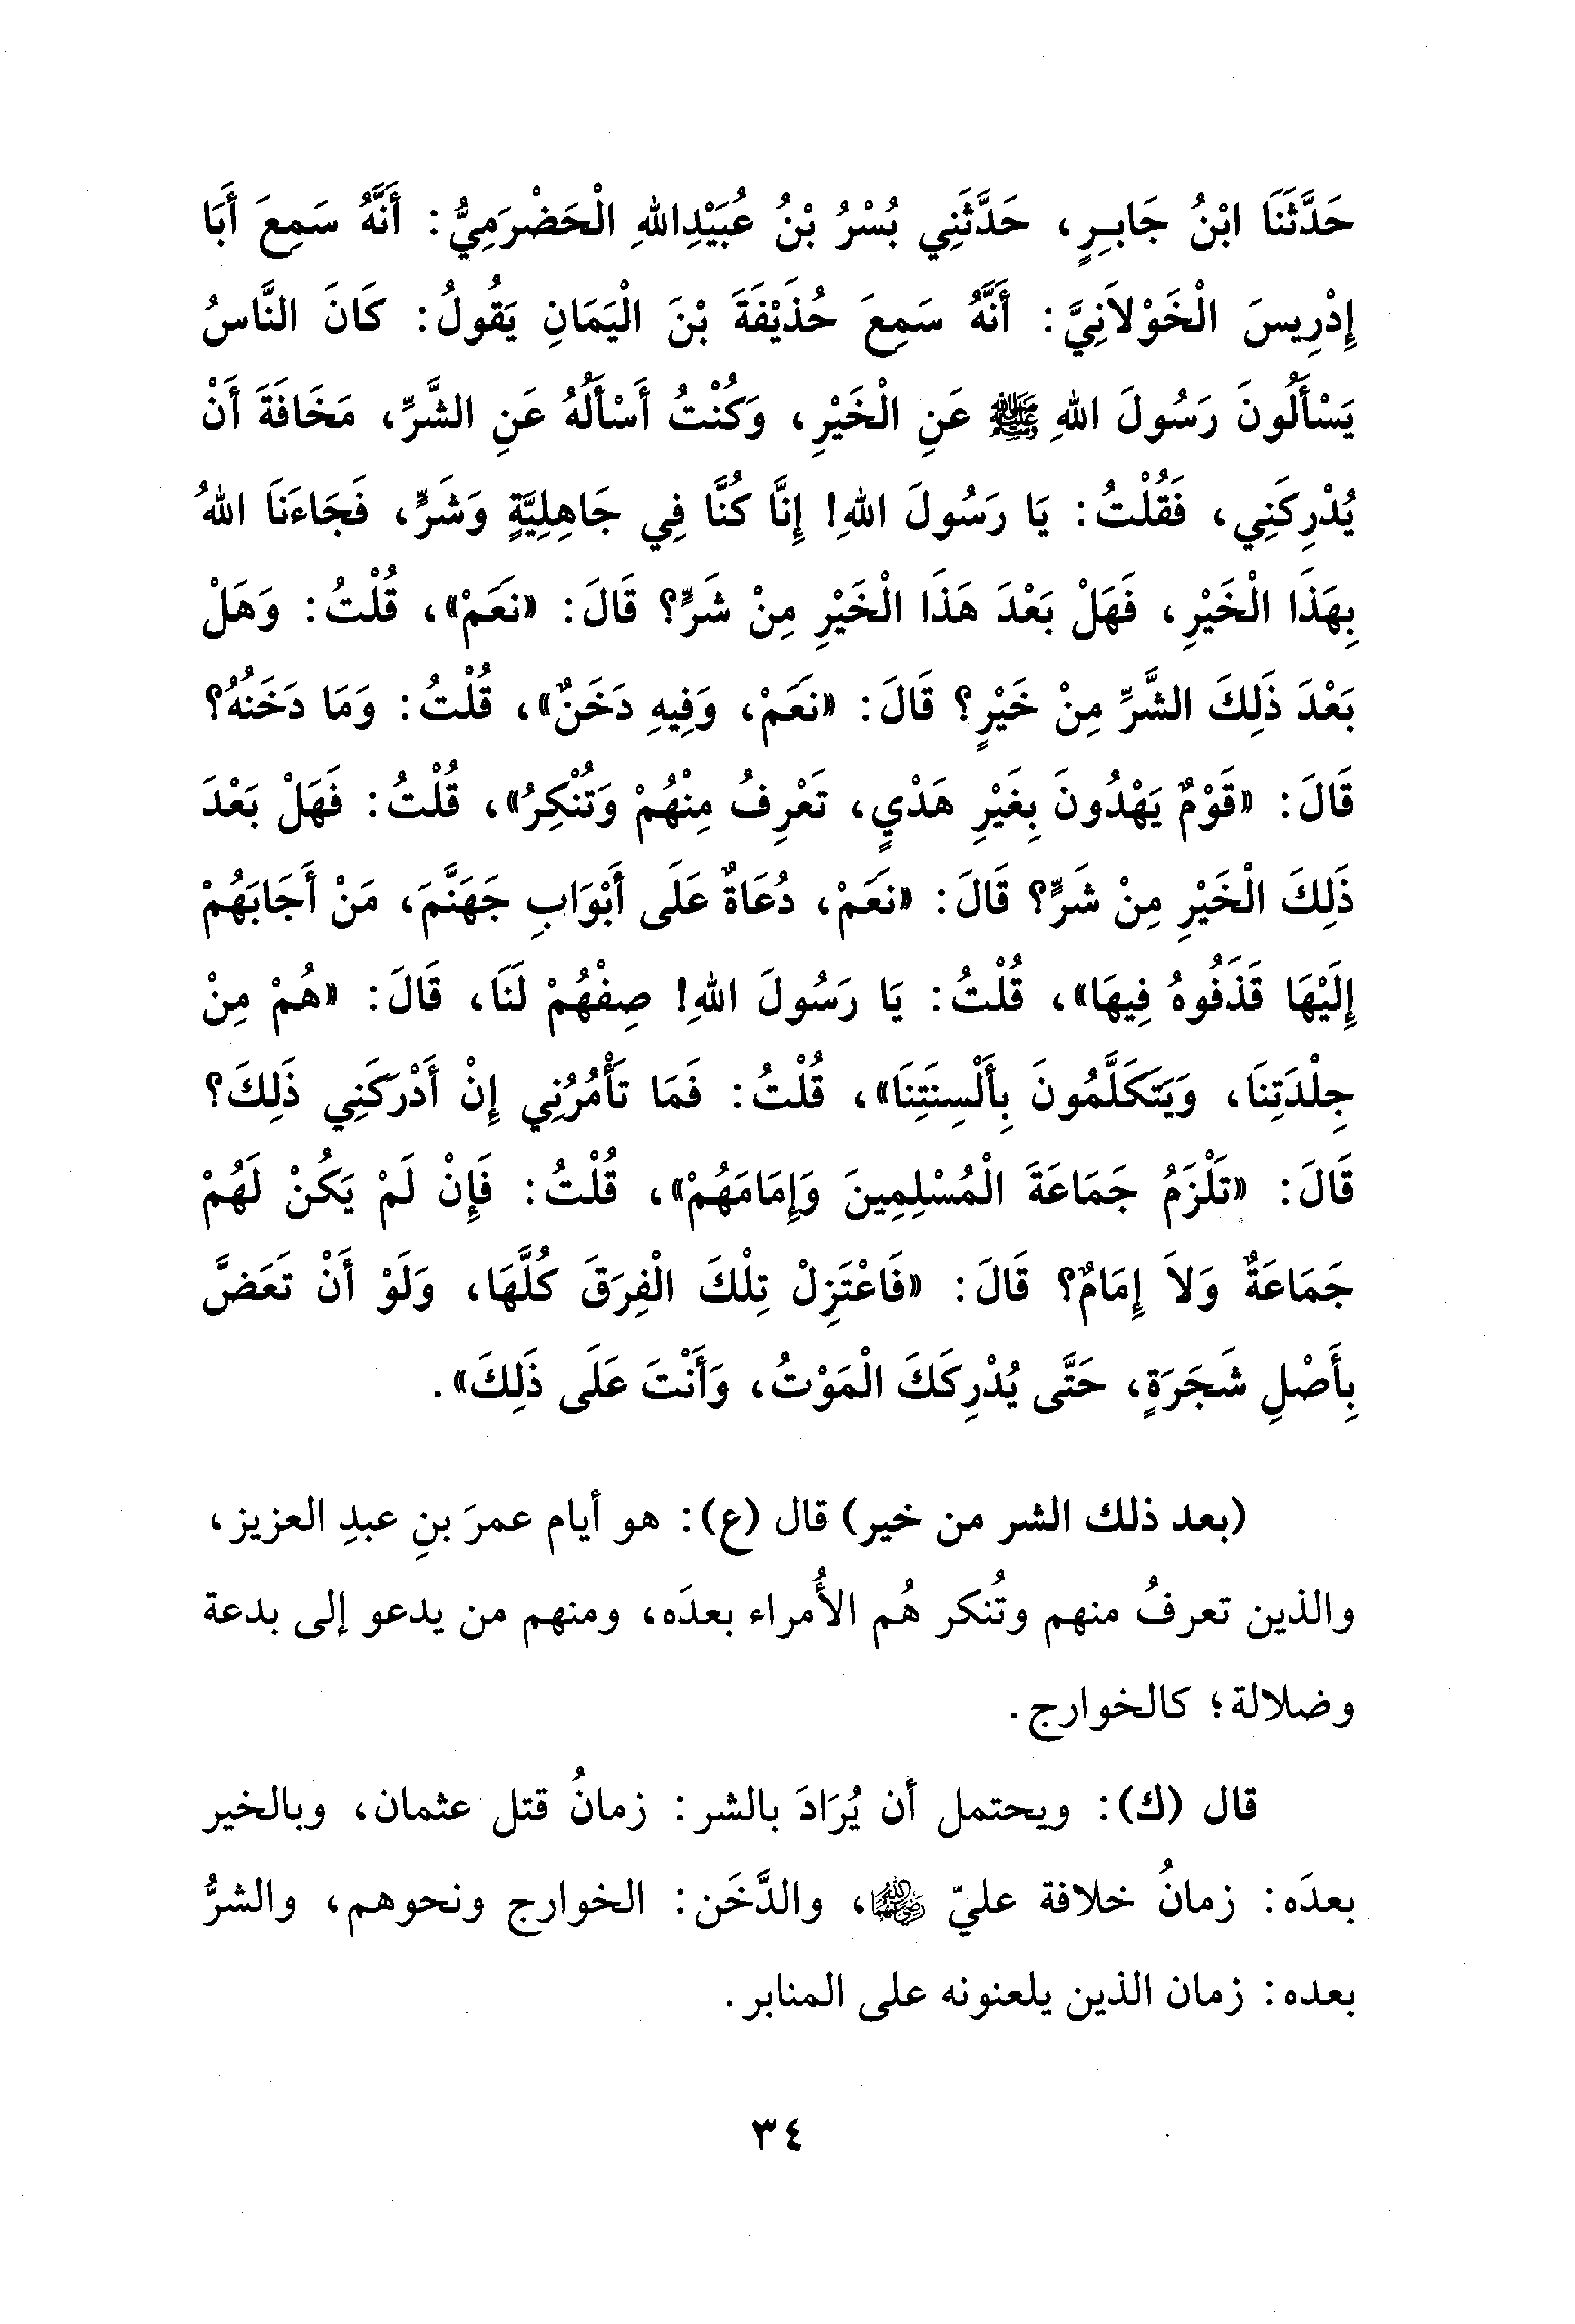 حَدَّثَنَا ابْنُ جَابِرٍ، حَدَّثَنِي بُسْرُ بْنُ عُبَيْدِاللهِ الْحَضْرَمِيُّ: أَنَّهُ سَمِعَ أَبَا
إِدْرِيسَ الْخَوْلاَنِيَّ: أَنَّهُ سَمِعَ حُذَيْفَةَ بْنَ الْيَمَانِ يَقُولُ: كَانَ النَّاسُ
يَسْأَلُونَ رَسُولَ اللهِ ﷺ عَنِ الْخَيْرِ، وَكُنْتُ أَسْأَلُهُ عَنِ الشَّرِّ، مَخَافَةَ أَنْ
يُدْرِكَنِي، فَقُلْتُ: يَا رَسُولَ اللهِ! إِنَّا كُنَّا فِي جَاهِلِيَّةٍ وَشَرٍّ، فَجَاءَنَا اللهُ
بِهَذَا الْخَيْرِ، فَهَلْ بَعْدَ هَذَا الْخَيْرِ مِنْ شَرٍّ؟ قَالَ: «نَعَمْ»، قُلْتُ: وَهَلْ
بَعْدَ ذَلِكَ الشَّرِّ مِنْ خَيْرٍ؟ قَالَ: «نَعَمْ، وَفِيهِ دَخَنٌ»، قُلْتُ: وَمَا دَخَنُهُ؟
قَالَ: «قَوْمٌ يَهْدُونَ بِغَيْرِ هَدْيٍ، تَعْرِفُ مِنْهُمْ وَتُنْكِرُ»، قُلْتُ: فَهَلْ بَعْدَ
ذَلِكَ الْخَيْرِ مِنْ شَرٍّ؟ قَالَ: «نَعَمْ، دُعَاةٌ عَلَى أَبْوَابِ جَهَنَّمَ، مَنْ أَجَابَهُمْ
إِلَيْهَا قَذَفُوهُ فِيهَا»، قُلْتُ: يَا رَسُولَ اللهِ! صِفْهُمْ لَنَا، قَالَ: «هُمْ مِنْ
جِلْدَتِنَا، وَيَتَكَلَّمُونَ بِأَلْسِنَتِنَا»، قُلْتُ: فَمَا تَأْمُرُنِي إِنْ أَدْرَكَنِي ذَلِكَ؟
قَالَ: «تَلْزَمُ جَمَاعَةَ الْمُسْلِمِينَ وَإِمَامَهُمْ»، قُلْتُ: فَإِنْ لَمْ يَكُنْ لَهُمْ
جَمَاعَةٌ وَلاَ إِمَامٌ؟ قَالَ: «فَاعْتَزِلْ تِلْكَ الْفِرَقَ كُلَّهَا، وَلَوْ أَنْ تَعَضَّ
بِأَصْلِ شَجَرَةٍ، حَتَّى يُدْرِكَكَ الْمَوْتُ، وَأَنْتَ عَلَى ذَلِكَ».
(بعد ذلك الشر من خير) قال (ع): هو أيام عمرَ بنِ عبدِ العزيز،
والذين تعرفُ منهم وتُنكر هُم الأُمراء بعدَه، ومنهم من يدعو إلى بدعة
وضلالة؛ كالخوارج.
قال (ك): ويحتمل أن يُرَادَ بالشر: زمانُ قتل عثمان، وبالخير
بعدَه: زمانُ خلافة عليّ رضي الله عنهما، والدَّخَن: الخوارج ونحوهم، والشرُّ
بعده: زمان الذين يلعنونه على المنابر.
٣٤